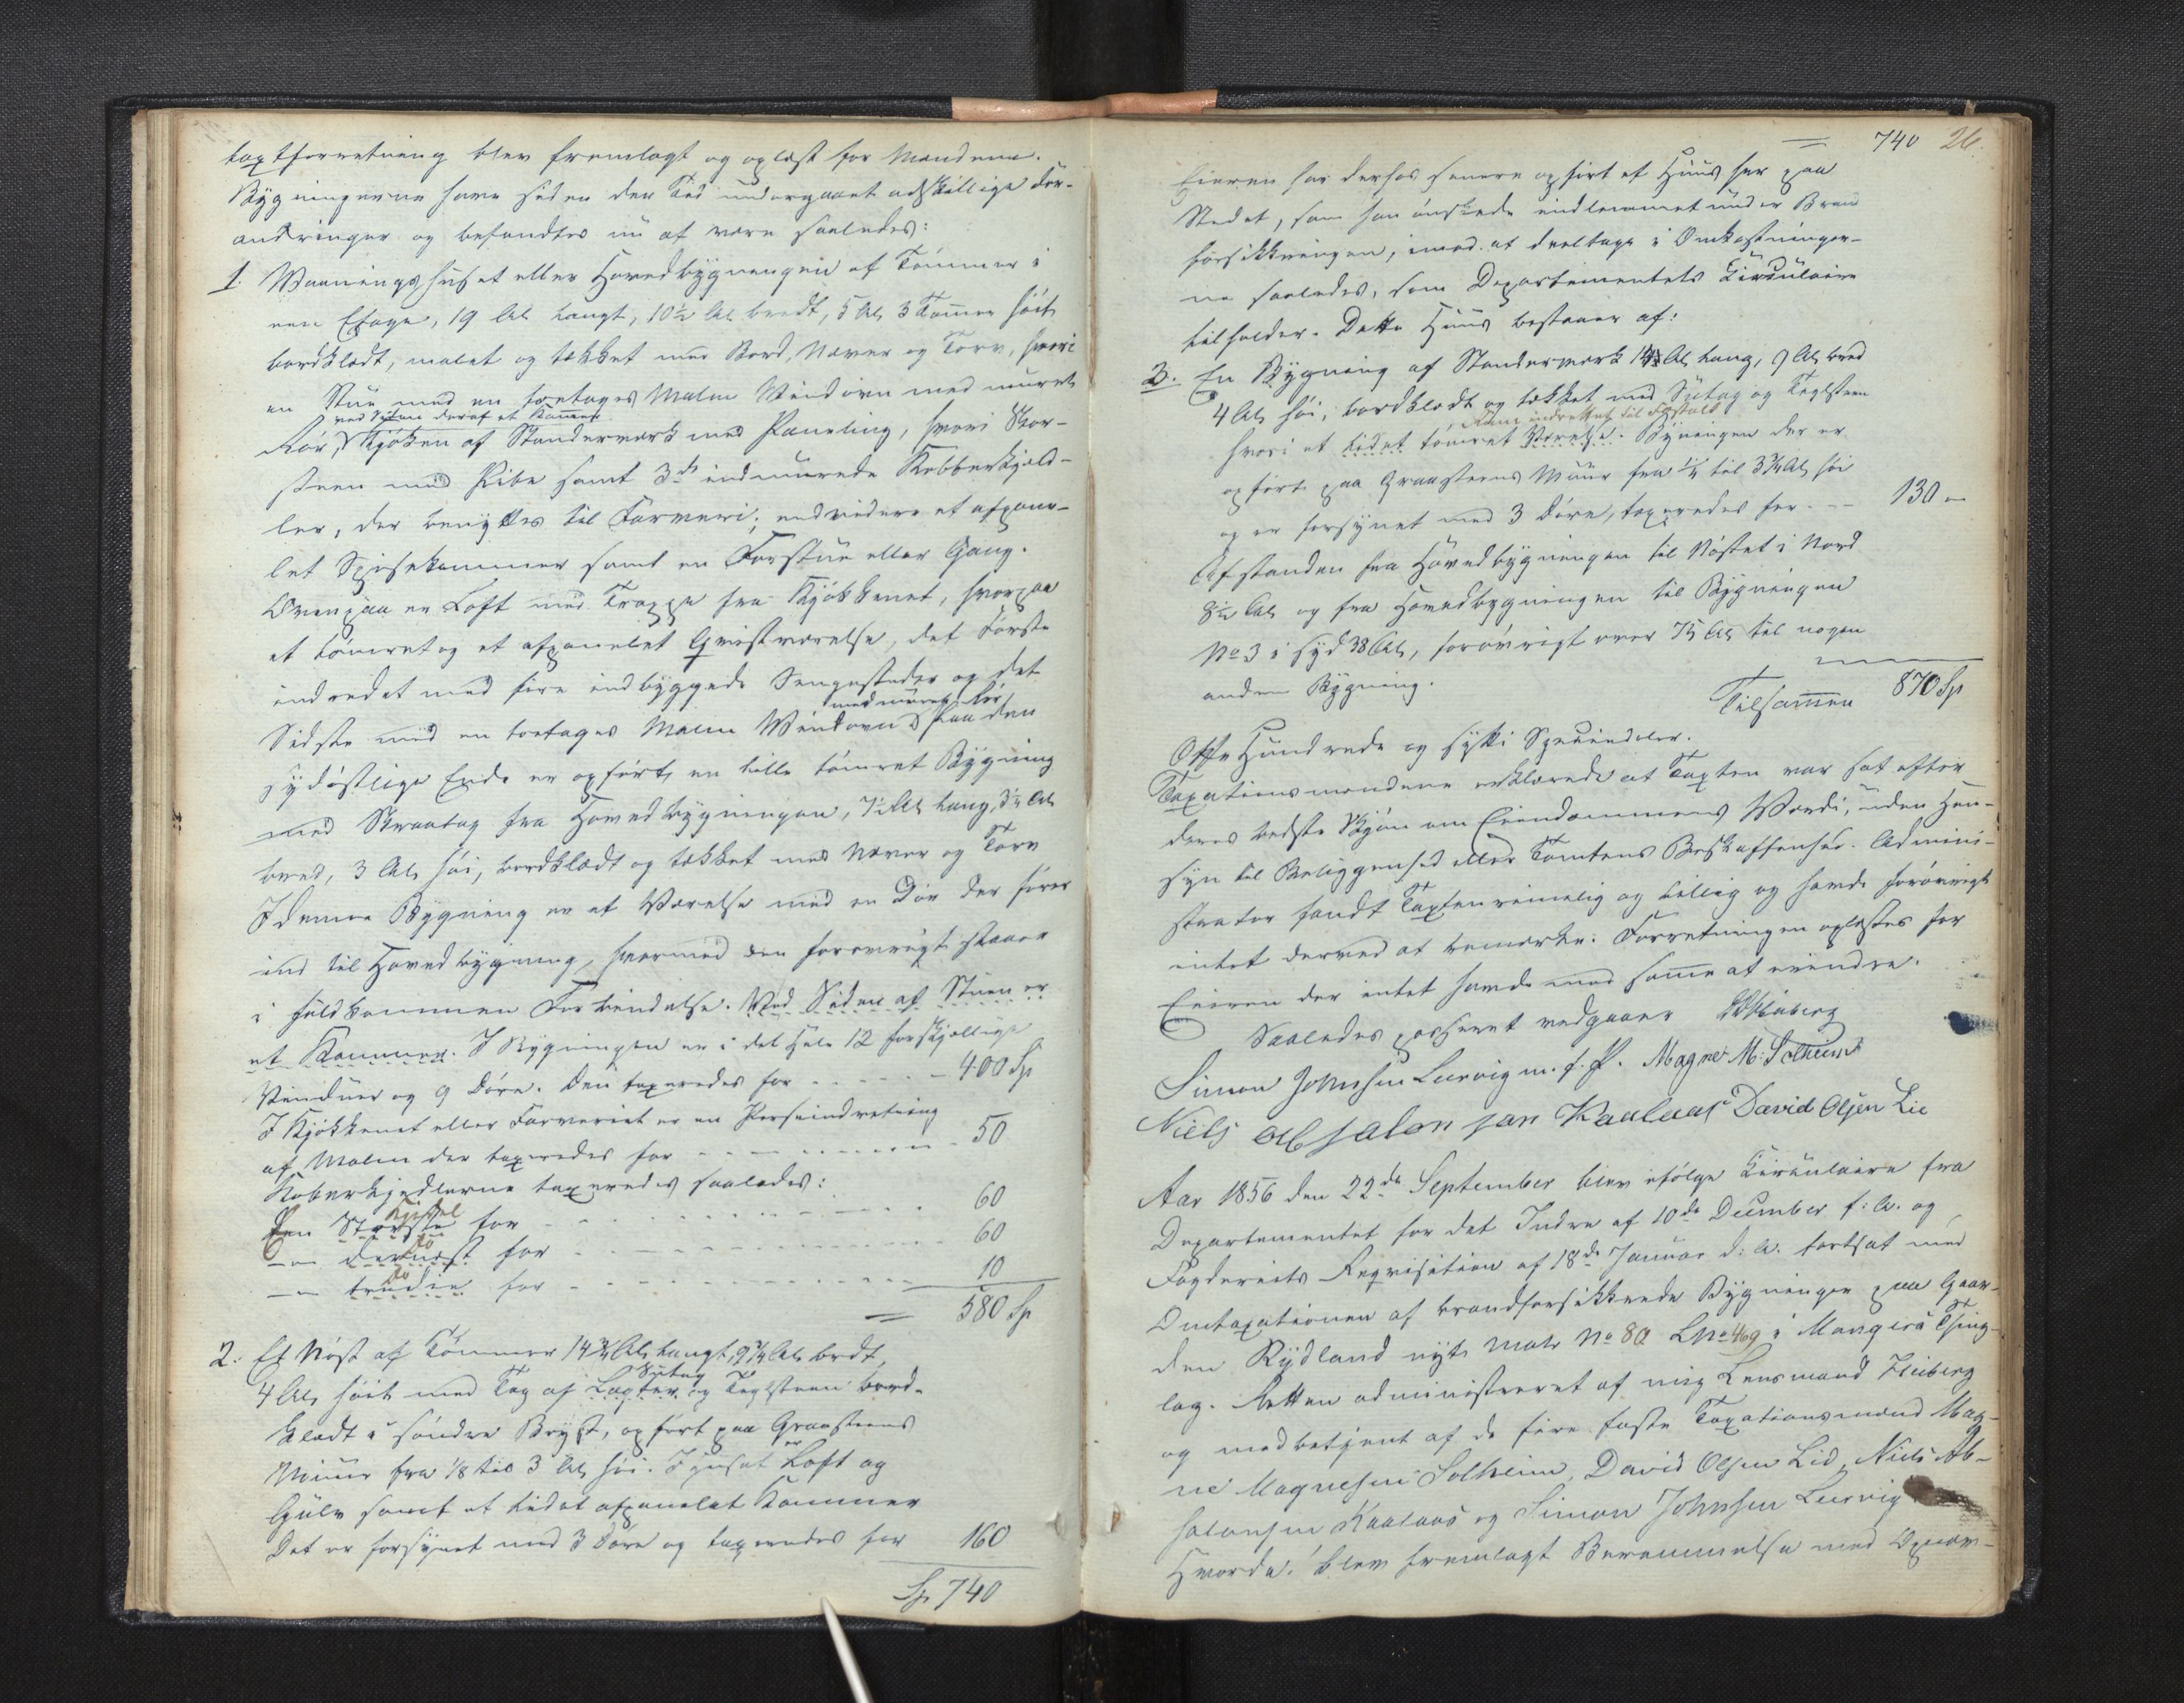 taxtforretning blev fremlagt og oplæst for Mændene.
Bygningerne have siden den Tid undergaaet adskillige For-
andringer og befandtes nu at være saaledes:
1. Vaaningshuset eller Hovedbygningen af Tømmer i
een Etage, 19 Al. langt, 10½ Al. bredt, 5 Al. 3 Tommer høit
bordklædt, malet og tækket med Bord, Næver og Torv, hvori
en Stue med en toetages Malm Vindovn med muret
ved Siden deraf et Kammer
Rør, Kjøken af Standerværk med Paneling, hvori Skor-
steen med Pibe samt 3de indmurede Kobberkjed-
ler, der benyttes til Farveri; endvidere et afpane-
let Spisekammer samt en Forstue eller Gang.
Ovenpaa en Loft med Trappe fra Kjøkkenet, hvorpaa
et tømret og et afpanelet Qvistværelse, det Første
indredet med fire indbyggede Sengesteder og det
med muret Rør
Sidste med en toetages Malm Vindovn. Paa den
sydøstlige Ende er opført en lille tømret Bygning
med Skraatag fra Hovedbygningen, 7½ Al. lang, 3½ Al.
bred, 3 Al. høi, bordklædt og tækket med Næver og Torv
I denne Bygning er et Værelse med en Dør der fører
ind til Hovedbygning, hvormed den forøvrigt staaer
i fuldkommen Forbindelse. Ved Siden af Stuen er
et Kammer. I Bygningen er i det Hele 12 forskjellige
Vinduer og 9 Døre. Den taxeredes for - - - - - 400 Sp
I Kjøkkenet eller Farveriet er en Perseindretning
af Malm der taxeredes for - - - - - - - 50
Koberkjedlerne taxeredes saaledes:
Kjedel
Den Største for - - - - - - - - - 60
do
— dernæst for - - - - - - - - - 60
do
— tredie for - - - - - - - - - 10
= 580 Sp
2. Et Nøst af Tømmer 14¾ Al. langt, 9¾ Al. bredt,
Sutag
4 Al. høit med Tag af Lægter og Teglsteen bord-
klædt i søndre Bryst, opført paa Graasteens
er
Muur fra ⅛ til 3 Al. høi. I huset Loft og
Gulv samt et lidet afpanelet Kammer
Det er forsynet med 3 Døre og taxeredes for 160
Sp 740
= 740 26.
Eieren har derhos senere opført et Huus her paa
Stedet, som han ønskede indlemmet under Brand
forsikkringen, imod at deeltage i Omkostninger-
ne saaledes, som Departementets Circulaire
tilholder. Dette Huus bestaaer af:
3. En Bygning af Standerværk 14 Al. lang, 9 Al. bred
4 Al. høi, bordklædt og tækket med Sutag og Teglsteen
Rum indrettet til Fæstald
hvori et lidet tømret Værelse. Bygningen der er
opført paa Graasteens Muur fra ¼ til 3¾ Al. høi
og er forsynet med 3 Døre, taxeredes for - - - 130 —
Afstanden fra Hovedbygningen til Nøstet i Nord
8½ Al. og fra Hovedbygningen til Bygningen
No 3 i Syd 38 Al., forøvrigt over 75 Al. til nogen
anden Bygning.
Tilsammen 870 Sp
Otte Hundrede og sytti Speciedaler.
Taxationsmændene erklærede at Taxten var sat efter
deres bedste Skjøn om Eiendommens Værdi, uden Hen-
syn til Beliggenhed eller Tomtens Beskaffenhed. Admini-
strator fandt Taxten rimelig og billig og havde forøvrigt
intet derved at bemærke. Forretningen oplæstes for
Eieren der intet havde mod samme at erindre.
Saaledes passeret vedgaaer Heiberg
Simon Johnsen Leirvig m. f. P. Magne M: Solheim
Niels Absalonsen Kaalaas David Olsen Lie
Aar 1856 den 22de September blev ifølge Circulaire fra
Departementet for det Indre af 10de December f: A. og
Fogderiets Reqvisition af 18de Januar d: A. fortsat med
Omtaxationen af brandforsikkrede Bygninger paa Gaar-
den Rydland nyt Matr No 80 LNo 469 i Mangers Thing-
lag. Retten administreret af mig Lensmand Heiberg
og medbetjent af de fire faste Taxationsmænd Mag-
ne Magnesen Solheim, David Olsen Lid, Niels Ab-
salonsen Kaalaas og Simon Johnsen Leirvig
Hvorda! blev fremlagt Berammelse med Opnæv-